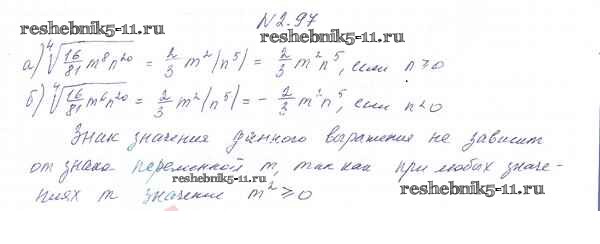 N 2.97
reshebnik5-11.ru reshebnik5-11.ru
а) ⁴√(16/81 m⁸n²⁰) = 2/3 m²|n⁵| = 2/3 m²n⁵, если n ≥ 0
б) ⁴√(16/81 m⁸n²⁰) = 2/3 m²|n⁵| = - 2/3 m²n⁵, если n < 0
Знак значения данного выражения не зависит
от знака переменной m, так как при любых значе-
reshebnik5-11.ru reshebnik5-11.ru
ниях m значение m² ≥ 0